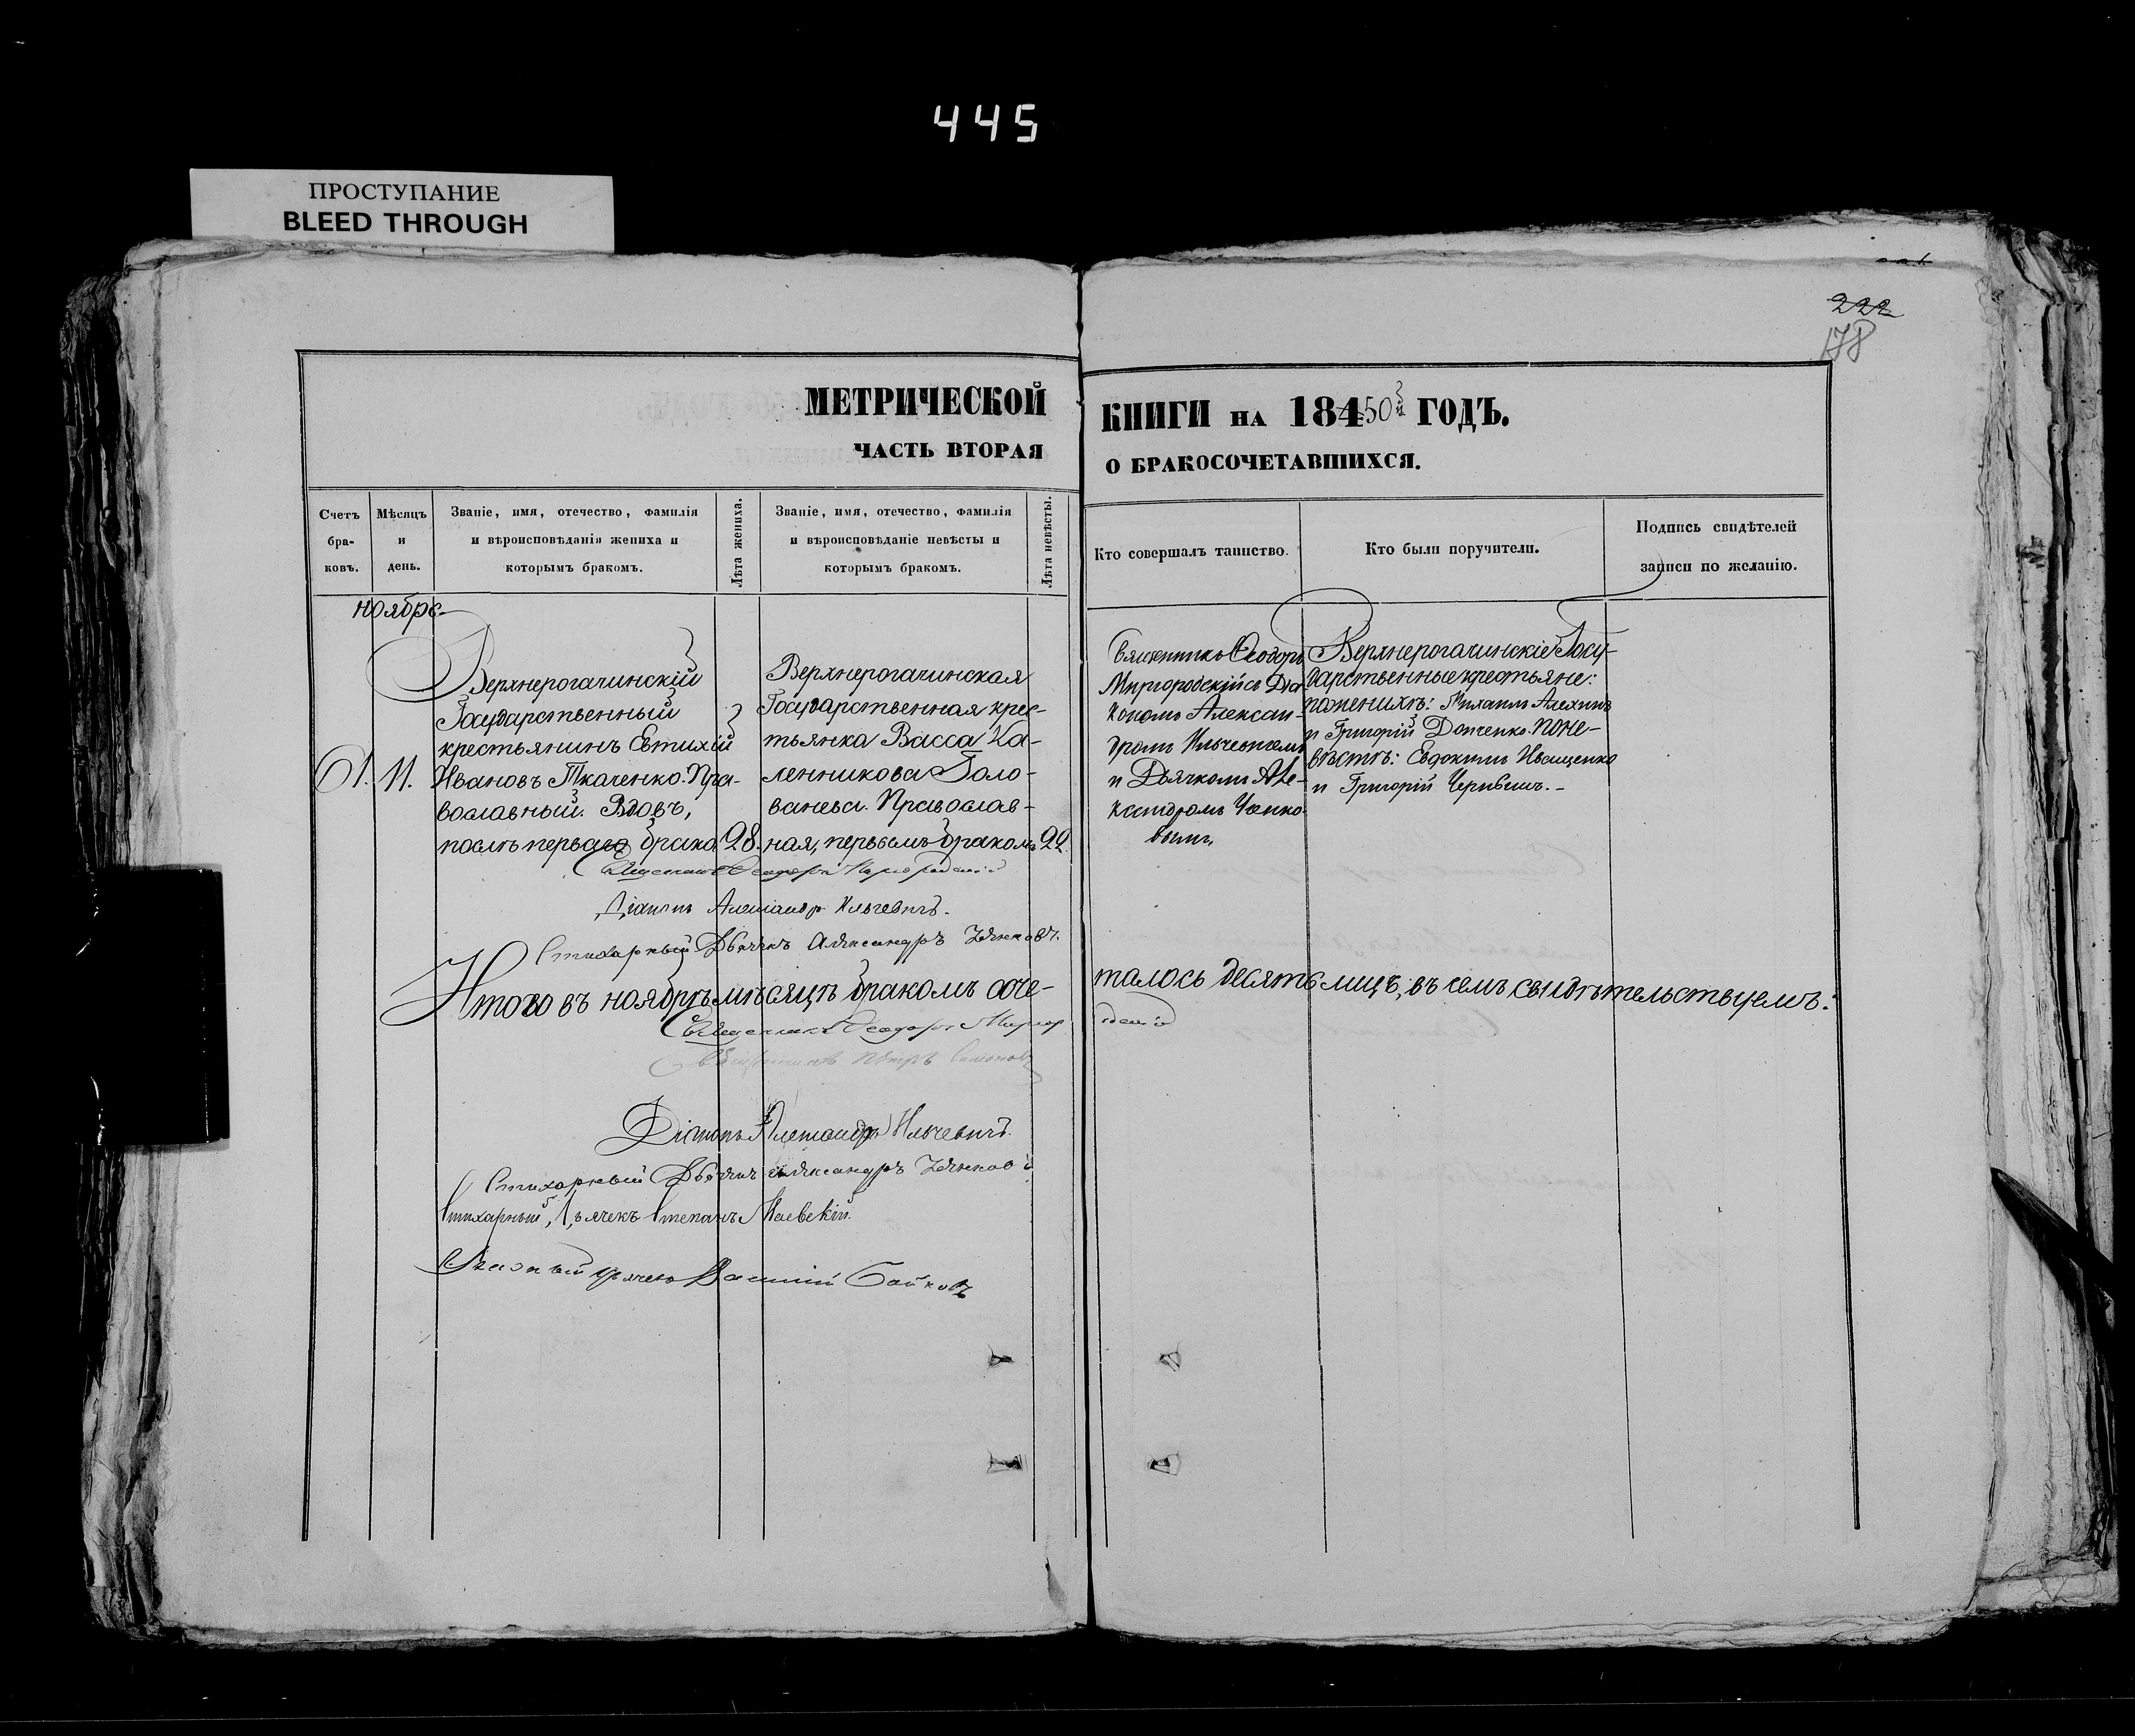 445
ПРОСТУПАНИЕ
BLEED THROUGH
222
178
МЕТРИЧЕСКОЙ
ЧАСТЬ ВТОРАЯ
КНИГИ НА 18450й ГОДЪ.
О БРАКОСОЧЕТАВШИХСЯ.
Счетъ
бра-
ковъ.
Мѣсяцъ
и
день.
Званіе, имя, отечество, фамилія
и вѣроисповѣданіе жениха и
которымъ бракомъ.
Лѣта жениха.
Званіе, имя, отечество, фамилія
и вѣроисповѣданіе невѣсты и
которымъ бракомъ.
Лѣта невѣсты.
Кто совершалъ таинство.
Кто были поручители.
Подпись свидѣтелей
записи по желанію.
ноябрь
11.
Верхнерогачинскій
Государственный
крестьянинъ Евтихій
Ивановъ Ткаченко. Пра-
вославный. Вдовъ,
послѣ перваго брака
28.
Верхнерогачинская
Государственная крес-
тьянка Васса Ка-
ленникова Голо-
ванева. Православ-
ная, первымъ бракомъ
22.
Священникъ Ѳеодоръ
Миргородскій съ Діа-
кономъ Алексан-
дромъ Ильчевичемъ
и Дьячкомъ Але-
ксандромъ
вымъ,
Верхнерогачинскіе Госу-
дарственные крестьяне:
по женихѣ: Михаилъ
и Григорій Донченко. по не-
вѣстѣ: Евдокимъ Иващенко
и Григорій
Священникъ Ѳеодоръ Миргородскій
Діаконъ Александръ Ильчевичъ.
Стихарный Дьячекъ Александръ
Итого въ ноябрѣ мѣсяцѣ бракомъ соче-
талось десять лицъ, въ семъ свидѣтельствуемъ:
Священникъ Ѳеодоръ Миргородскій
Священникъ Петръ
Діаконъ Александръ Ильчевичъ.
Стихарный Дьячекъ Александръ
Стихарный Дьячекъ Степанъ Маевскій.
дьячекъ Василій Байковъ